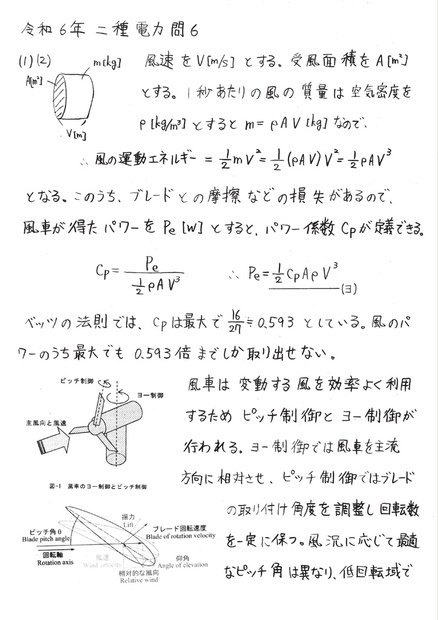 令和6年 二種 電力 問6
(1)(2) m[kg] 風速をV[m/s]とする。受風面積をA[m²]
A[m²] とする。1秒あたりの風の質量は空気密度を
V[m] ρ[kg/m³]とするとm=ρAV[kg]なので、
∴風の運動エネルギー = 1/2 mV² = 1/2 (ρAV)V² = 1/2 ρAV³
となる。このうち、ブレードとの摩擦などの損失があるので、
風車が得たパワーをPe[W]とすると、パワー係数Cpが定義できる。
Cp = Pe / (1/2 ρAV³) ∴ Pe = 1/2 CpAρV³
(ヨ)
ベッツの法則では、Cpは最大で 16/27 ≒ 0.593 としている。風のパ
ワーのうち最大でも 0.593倍までしか取り出せない。
ピッチ制御
ヨー制御
主風向と風速
図-1 風車のヨー制御とピッチ制御
風車は変動する風を効率よく利用
するためピッチ制御とヨー制御が
行われる。ヨー制御では風車を主流
方向に相対させ、ピッチ制御ではブレード
の取り付け角度を調整し回転数
を一定に保つ。風況に応じて最適
なピッチ角は異なり、低回転域で
揚力
Lift
ピッチ角θ
Blade pitch angle
ブレード回転速度
Blade of rotation velocity
回転軸
Rotation axis
風速
Wind velocity
仰角
Angle of elevation
相対的な風向
Relative wind